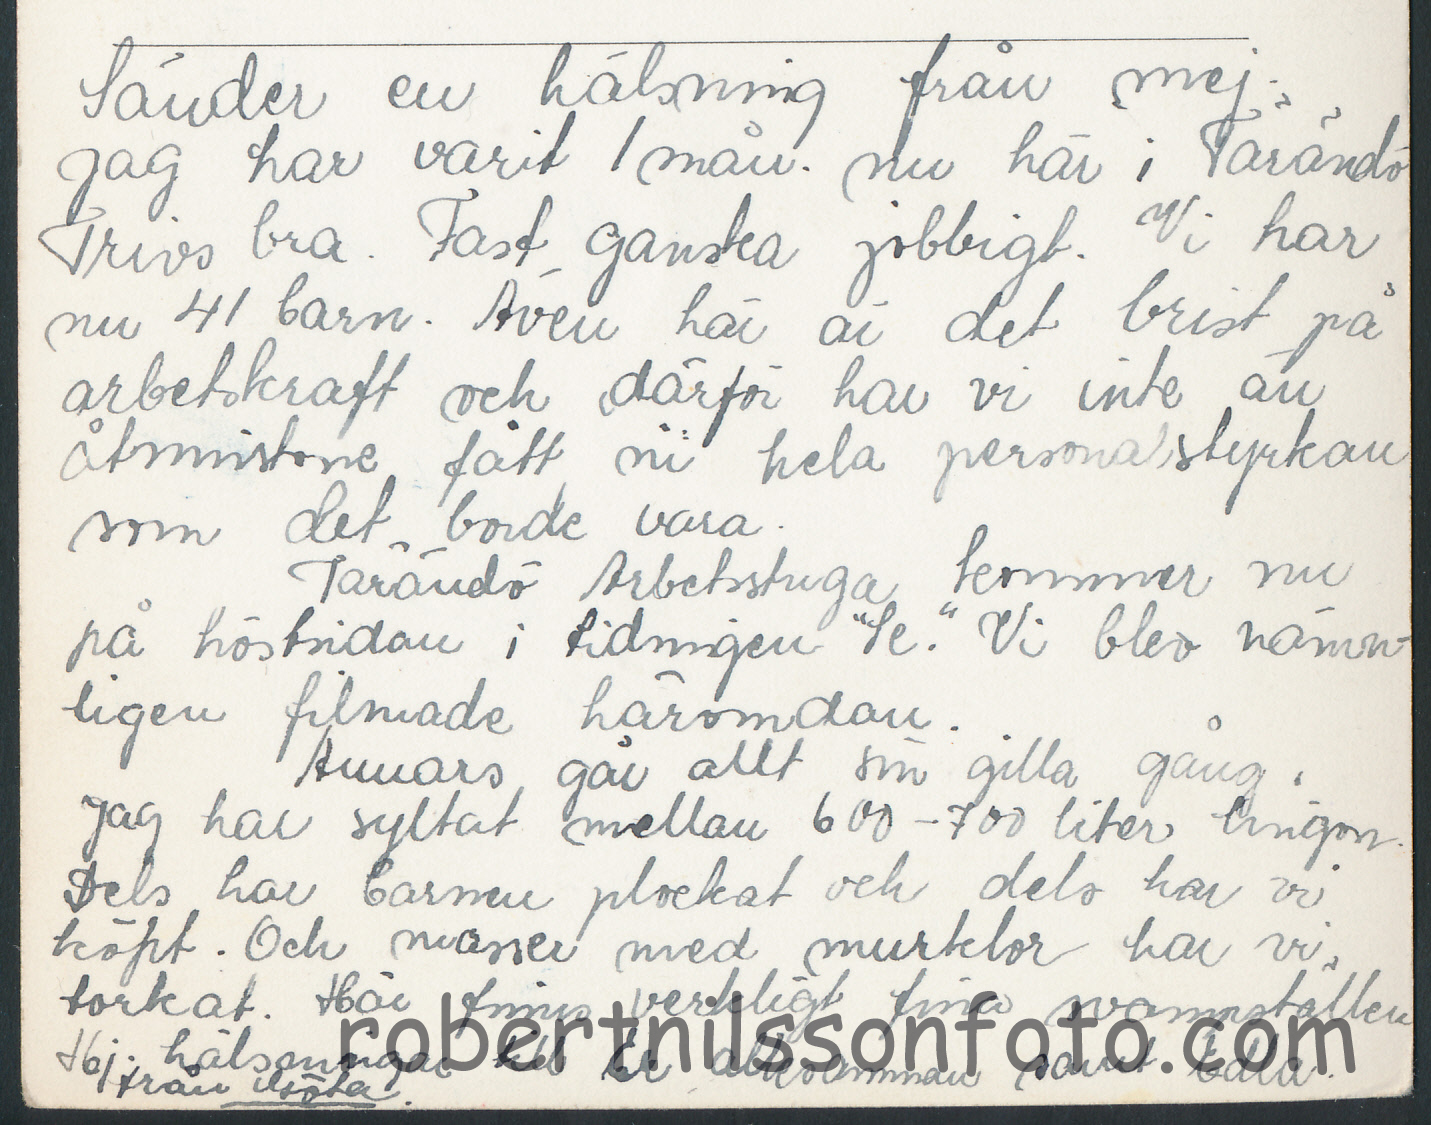 Sänder en hälsning från mej.
jag har varit 1 mån. nu här i Tärändö
Trivs bra. Fast ganska jobbigt. Vi har
nu 41 barn. Även här är det brist på
arbetskraft och därför har vi inte än
åtminstone fått hela personalstyrkan
som det borde vara.
Tärändö Arbetsstuga kommer nu
på höstsidan i tidningen "Se." Vi blev nämn-
ligen filmade häromdan.
Annars går allt sin gilla gång.
Jag har syltat mellan 600-700 liter lingon.
Dels har barnen plockat och dels har vi
köpt. Och masser med murklor har vi
torkat. Här finns verkligt fina svampställen
Hej. hälsningar till Er allesamman samt Edla.
från
robertnilssonfoto.com